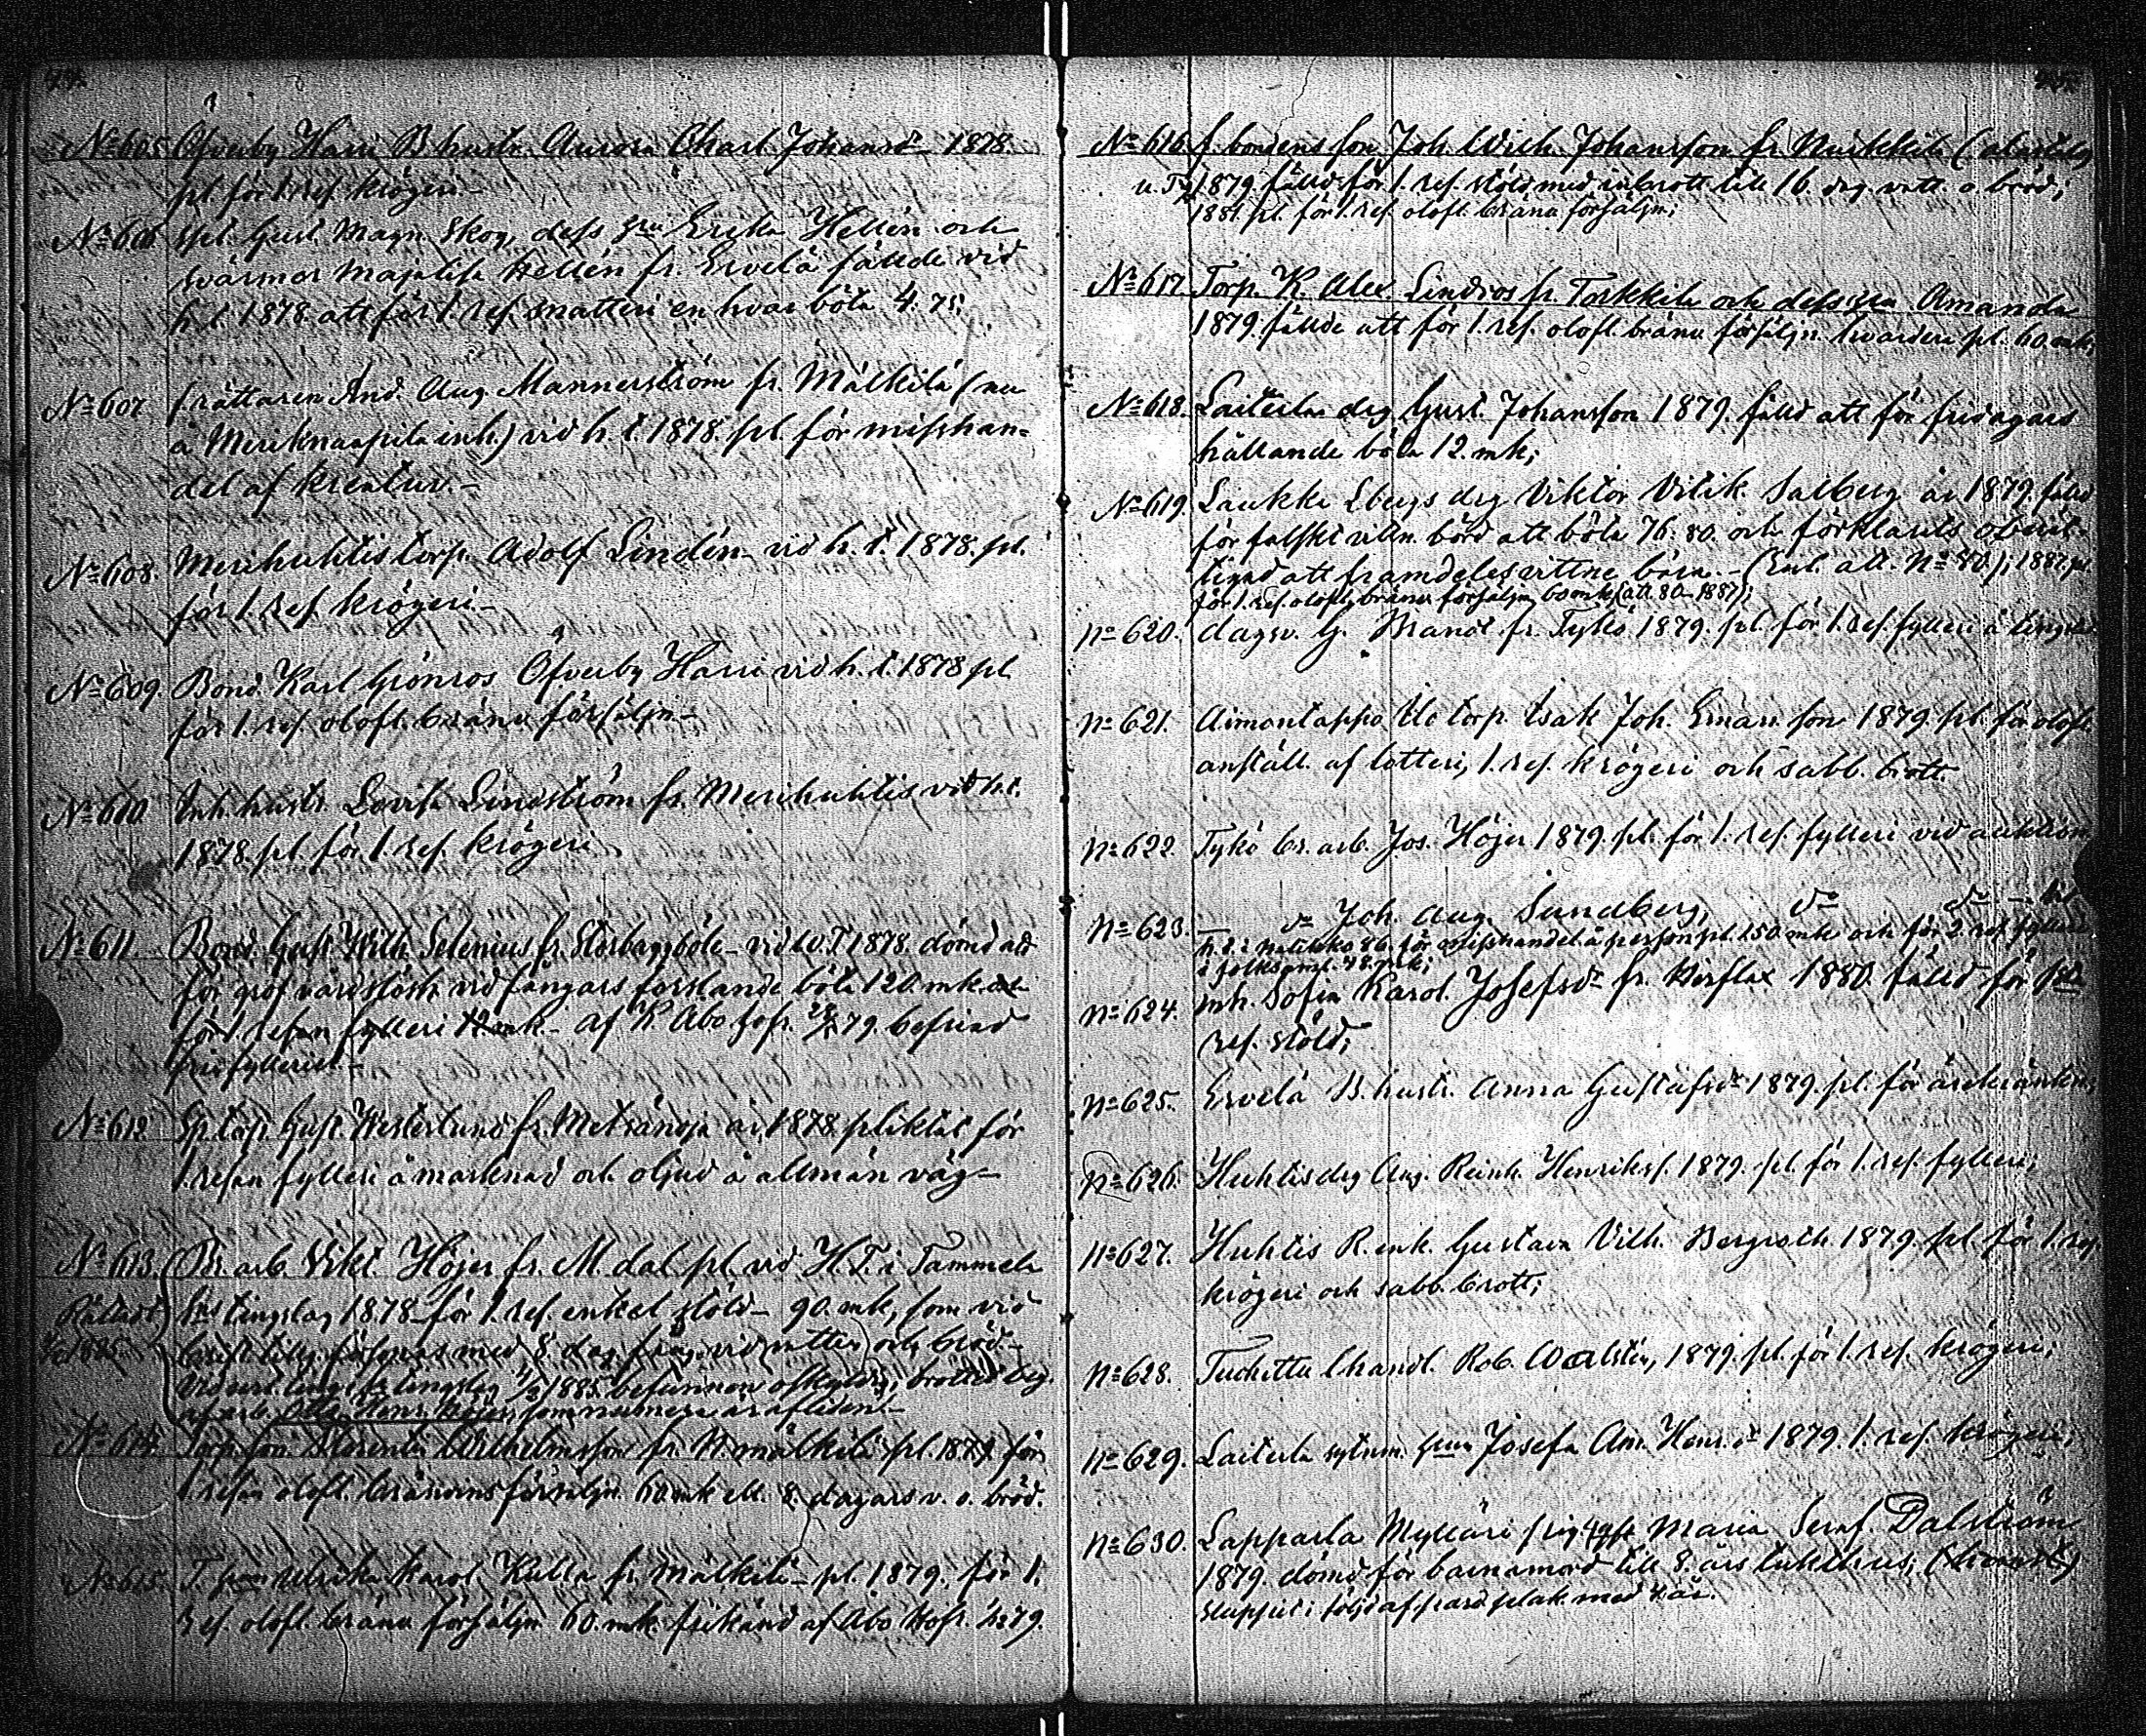 No 605. Öfverby Harri B. hustr. Aurora Charl. Johansdr 1878.
pl. för 1. res. krögeri –
No 606 Spl. Gust. Magn. Skog, dess hru Erika Hellén och
svärmor Majalisa Hellén fr. Ervelä fällde vid
h. t. 1878. att för 1. res. snatteri en hvar böta 4. 75.
No 607 f. rättaren And. Aug. Mannerström fr. Mälkilä (nu
å Meriknaapila inh.) vid h. t. 1878. pl. för misshan=
del af kreatur. –
No 608. Merihuhtis torp. Adolf Lindén – vid h. t. 1878. pl.
för 1. res. krögeri –
No 609. Bond. Karl Grönros Öfverby Harri vid h. t. 1878 pl.
för 1. res. olofl. bränv. försäljn –
No 610 Inh. hustr. Lovisa Lindström fr. Merihuhtis vid h. t.
1878. pl. för 1. res. krögeri
No 611. Bond. Gust. Wilh. Selenius fr. Storbaggböle – vid v. T 1878. dömd att
för grof vårdslösh. vid fångars forslande böta 120 mk. och
för 1. resan fylleri 12 mk – af K. Åbo Hofr. 79. befriad
från fylleriet –
No 612 Sp. torp. Gust. Westerlund fr. Metsänoja är 1878 pliktat för
1. resan fylleri å marknad och oljud å allmän väg –
No 613. Br. arb. Vikt. Höjer fr. M. dal pl. vid H. T. i Tammela
tingslag 1878 för 1. res. enkel stöld – 90. mk, som vid
1885 brist. tillg. försonas med 8. dag. fäng. vid vatten och bröd. –
Vid urt. ting 1885. befunnen oskyldig; brottet beg.
af arb. Otto Henr. Höjer, som numera är afliden –
No 614. Torp. son Florentin Wilhelmsson fr. N. mälkilä pl. 1879 för
1. resan olofl. bränvins försäljn. 60 mk ell. 8. dagars v. o. bröd.
No 615. T. hru Ulrika Karol. Kulla fr. Mälkilä – pl. 1879. för 1.
res. olofl. bränv. försäljn 60. mk. frikänd af Åbo Hofr. 79.
No 616 f. bondens son Joh. Wilh. Johansson fr. Nurkkila
u. T. 1879. fälld för 1. res. stöld med inbrott till 16. dag. vatt. o. bröd;
1881. pl. för 1. res. olofl. bränv. försäljn;
No 617 Torp. K. Alex Lindros fr. Torkkila och dess hru Amanda
1879. fällde att för 1. res. olofl. bränv. försäljn. hvardera pl. 60 mk;
No 618. Laiterla drg Gust. Johansson 1879. fälld att för fridagars
hållande böta 12. mk;
No 619. Laukka Ebergs drg Viktor Vilik. Salberg är 1879. fälld
för falskt vittn. börd att böta 76. 80. och förklarats obehö-
rig att framdeles vittne bära. – (Enl. att. No 80.); 1887. pl.
för 1. res. olofl. bränv. försäljn 60 mk, (att. 80 – 1887);
No 620. dagsv. G. Brand fr. Tykö 1879. pl. för 1. res. fylleri å
No 621. Aimontappo Ulo torp. Isak Joh. Emansson 1879. pl. för olofl.
anställ. af lotteri, 1. res. krögeri och sabb. brott.
No 622 Tykö br. arb. Jos. Höjer 1879. pl. för 1. res. fylleri vid auktion
No 623. – do Joh. Aug. Sundberg, do do
h. t. i Matikko 86. för misshandel å person pl. 150 mk och för 2. res. fylleri
i folksaml. 48. mk;
No 624. inh. Sofia Karol. Josefsdr fr. 1880. fälld för
res. stöld;
No 625. Ervelä B. hustr. Anna Gustafsdr 1879. pl. för ärekränkn;
No 626. Huhtis drg Aug. Reinh. Henrikss. 1879. pl. för 1. res. fylleri;
No 627. Huhtis R. enk. Gustava Vilh. Bergroth 1879. pl. för 1. res.
krögeri och sabb. brott;
No 628. handl. Rob. Walstén, 1879. pl. för 1. res. krögeri;
No 629. Laiterla sytnm. hru Josefa Am. Henr. dr 1879. 1. res. krögeri;
No 630. Lapparla Mylläri pig Maria Seraf. Dalström
1879. dömd för barnamord till 8. års tukthus;
sluppit i följd af nåd plak. med 4. år.